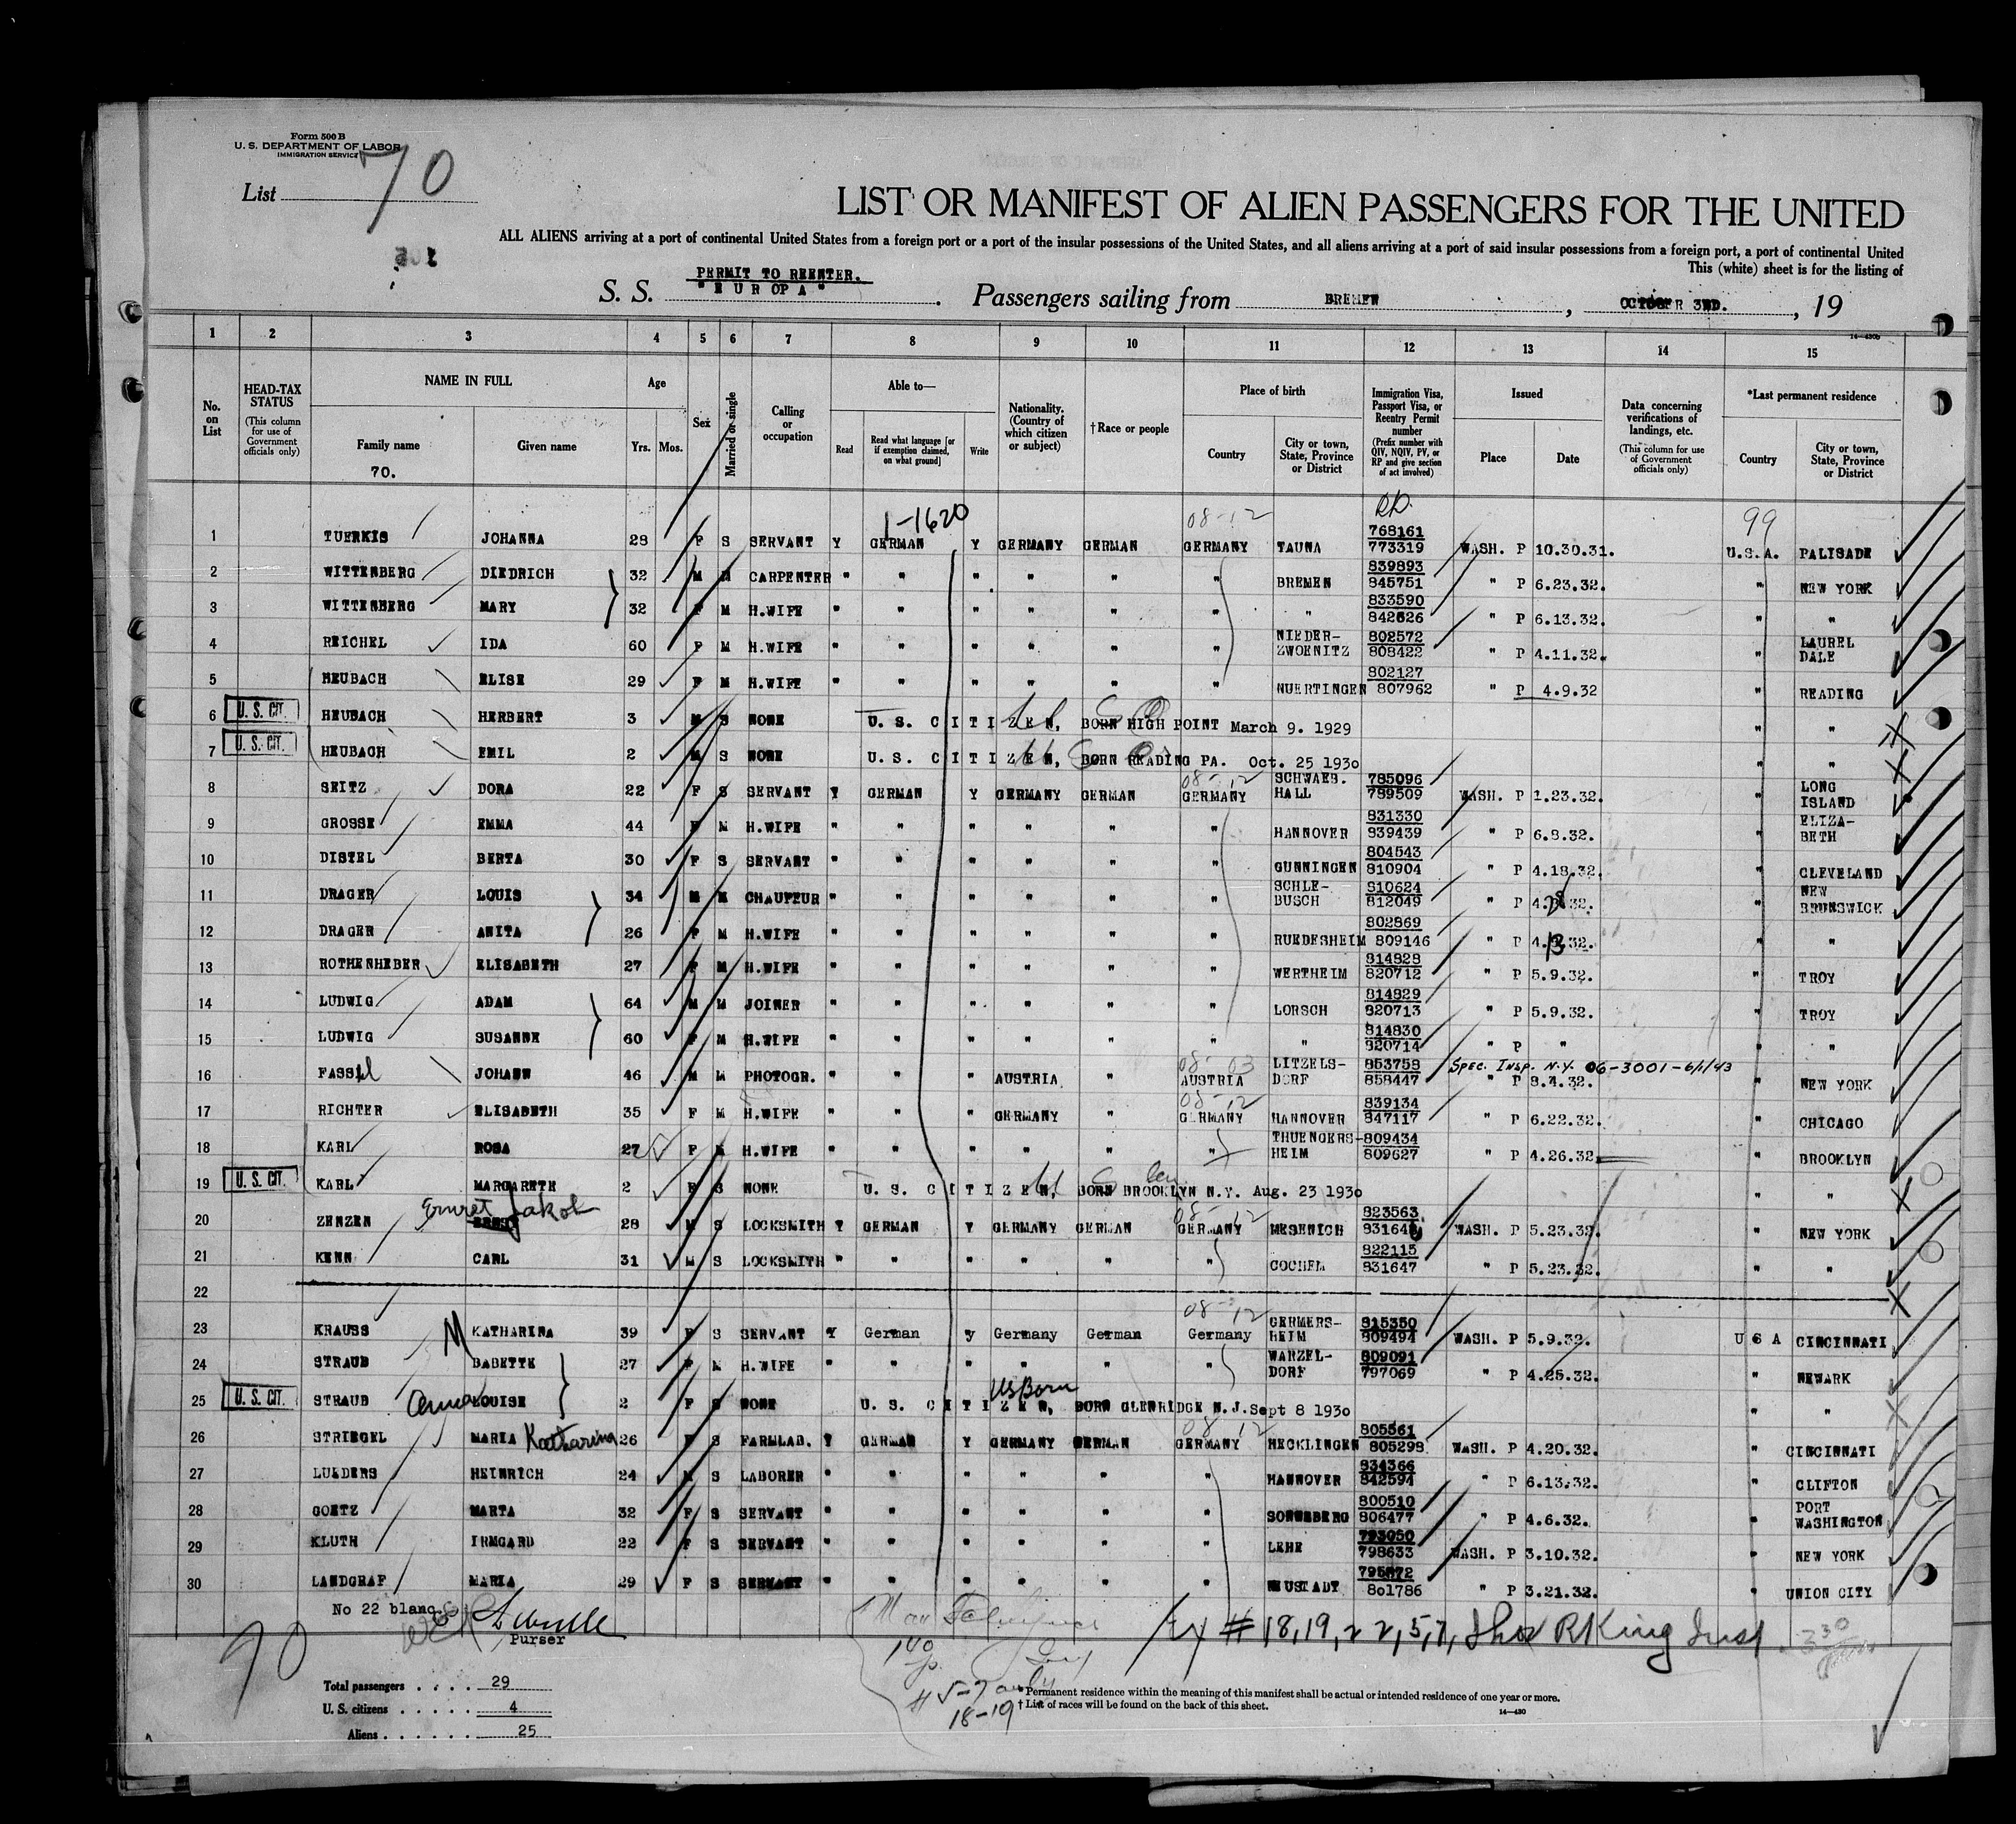 Form 500 B
U. S. DEPARTMENT OF LABOR
IMMIGRATION SERVICE
List 70
LIST OR MANIFEST OF ALIEN PASSENGERS FOR THE UNITED
ALL ALIENS arriving at a port of continental United States from a foreign port or a port of the insular possessions of the United States, and all aliens arriving at a port of said insular possessions from a foreign port, a port of continental United
This (white) sheet is for the listing of
PERMIT TO REENTER.
S. S. "EUROPA". Passengers sailing from BREMEN, OCTOBER 3RD., 19
14-430b
1 2 3 4 5 6 7 8 9 10 11 12 13 14 15
No. on List
HEAD-TAX STATUS (This column for use of Government officials only)
NAME IN FULL
Family name
70.
Given name
Age
Yrs. Mos.
Sex
Married or single
Calling or occupation
Able to—
Read
Read what language [or if exemption claimed, on what ground]
Write
Nationality. (Country of which citizen or subject)
†Race or people
Place of birth
Country
City or town, State, Province or District
Immigration Visa, Passport Visa, or Reentry Permit number (Prefix number with QIV, NQIV, PV, or RP and give section of act involved)
Issued
Place
Date
Data concerning verifications of landings, etc. (This column for use of Government officials only)
*Last permanent residence
Country
City or town, State, Province or District
1-1620 08-12 99
1 TUERKIS JOHANNA 28 F S SERVANT Y GERMAN Y GERMANY GERMAN GERMANY TAUNA 768161 773319 WASH. P 10.30.31. U.S.A. PALISADE
2 WITTENBERG DIEDRICH 32 M M CARPENTER " " " " " " BREMEN 839893 845751 " P 6.23.32. " NEW YORK
3 WITTENBERG MARY 32 F M H.WIFE " " " " " " " 833590 842626 " P 6.13.32. " "
4 REICHEL IDA 60 F M H.WIFE " " " " " " NIEDER-ZWOENITZ 802572 808422 " P 4.11.32. " LAUREL DALE
5 HEUBACH ELISE 29 F M H.WIFE " " " " " " NUERTINGEN 802127 807962 " P 4.9.32 " READING
6 U. S. CIT. HEUBACH HERBERT 3 M S NONE U. S. CITIZEN, BORN HIGH POINT March 9. 1929 " "
7 U. S. CIT. HEUBACH EMIL 2 M S NONE U. S. CITIZEN, BORN READING PA. Oct. 25 1930 " "
08-12
8 SEITZ DORA 22 F S SERVANT Y GERMAN Y GERMANY GERMAN GERMANY SCHWAEB. HALL 785096 789509 WASH. P 1.23.32. " LONG ISLAND
9 GROSSE EMMA 44 F M H.WIFE " " " " " " HANNOVER 831330 839439 " P 6.8.32. " ELIZA-BETH
10 DISTEL BERTA 30 F S SERVANT " " " " " " GUNNINGEN 804543 810904 " P 4.18.32. " CLEVELAND
11 DRAGER LOUIS 34 M M CHAUFFUR " " " " " " SCHLE-BUSCH 810624 812049 " P 4.28.32. " NEW BRUNSWICK
12 DRAGER ANITA 26 F M H.WIFE " " " " " " RUEDESHEIM 802869 809146 " P 4.13.32. " "
13 ROTHENHEBER ELISABETH 27 F M H.WIFE " " " " " " WERTHEIM 814828 820712 " P 5.9.32. " TROY
14 LUDWIG ADAM 64 M M JOINER " " " " " " LORSCH 814829 820713 " P 5.9.32. " TROY
15 LUDWIG SUSANNE 60 F M H.WIFE " " " " " " " 814830 820714 " P " " "
08-03 Spec. Insp. N.Y. 06-3001-6/1/43
16 FASSL JOHANN 46 M M PHOTOGR. " " " AUSTRIA " AUSTRIA LITZELS-DORF 853758 858447 " P 8.4.32. " NEW YORK
08-12
17 RICHTER ELISABETH 35 F M H.WIFE " " " GERMANY " GERMANY HANNOVER 839134 847117 " P 6.22.32. " CHICAGO
18 KARL ROSA 27 F M H.WIFE " " " " " " THUENGERS-HEIM 809434 809627 " P 4.26.32 " BROOKLYN
19 U. S. CIT. KARL MARGARETE 2 F S NONE U. S. CITIZEN, BORN BROOKLYN N.Y. Aug. 23 1930 " "
08-12
20 ZENZEN Jakob 28 M S LOCKSMITH Y GERMAN Y GERMANY GERMAN GERMANY MESENICH 823563 WASH. P 5.23.32. " NEW YORK
21 KENN CARL 31 M S LOCKSMITH " " " " " " COCHEM 822115 831647 " P 5.23.32. " "
22
08-12
23 KRAUSS M KATHARINA 39 F S SERVANT Y German y Germany German Germany GERMERS-HEIM 815350 809494 WASH. P 5.9.32. U S A CINCINNATI
24 STRAUB BABETTE 27 F M H.WIFE " " " " " " WARZEL-DORF 809091 797069 " P 4.25.32. " NEWARK
US Born
25 U. S. CIT. STRAUB Anna LOUISE 2 F S NONE U. S. CITIZEN, BORN GLENRIDGE N.J. Sept 8 1930 " "
08 12
26 STRIEGEL MARIA Katharina 26 F S FARMLAB. Y GERMAN Y GERMANY GERMAN GERMANY HECKLINGEN 805561 805298 WASH. P 4.20.32. " CINCINNATI
27 LUEDERS HEINRICH 24 M S LABORER " " " " " " HANNOVER 834366 842594 " P 6.13.32. " CLIFTON
28 GOETZ MARTA 32 F S SERVANT " " " " " " SONNEBERG 800510 806477 " P 4.6.32. " PORT WASHINGTON
29 KLUTH IRMGARD 22 F S SERVANT " " " " " " LEHE 793050 798633 WASH. P 3.10.32. " NEW YORK
30 LANDGRAF MARIA 29 F S SERVANT " " " " " " NEUSTADT 795872 801786 " P 3.21.32. " UNION CITY
No 22 blanc.
Purser
# 18, 19, 22, 5, 7, R King Insp.
70
# 5-7 only
18-19
Total passengers . . . . 29
U. S. citizens . . . . . 4
Aliens . . . . . . 25
*Permanent residence within the meaning of this manifest shall be actual or intended residence of one year or more.
†List of races will be found on the back of this sheet.
14-430